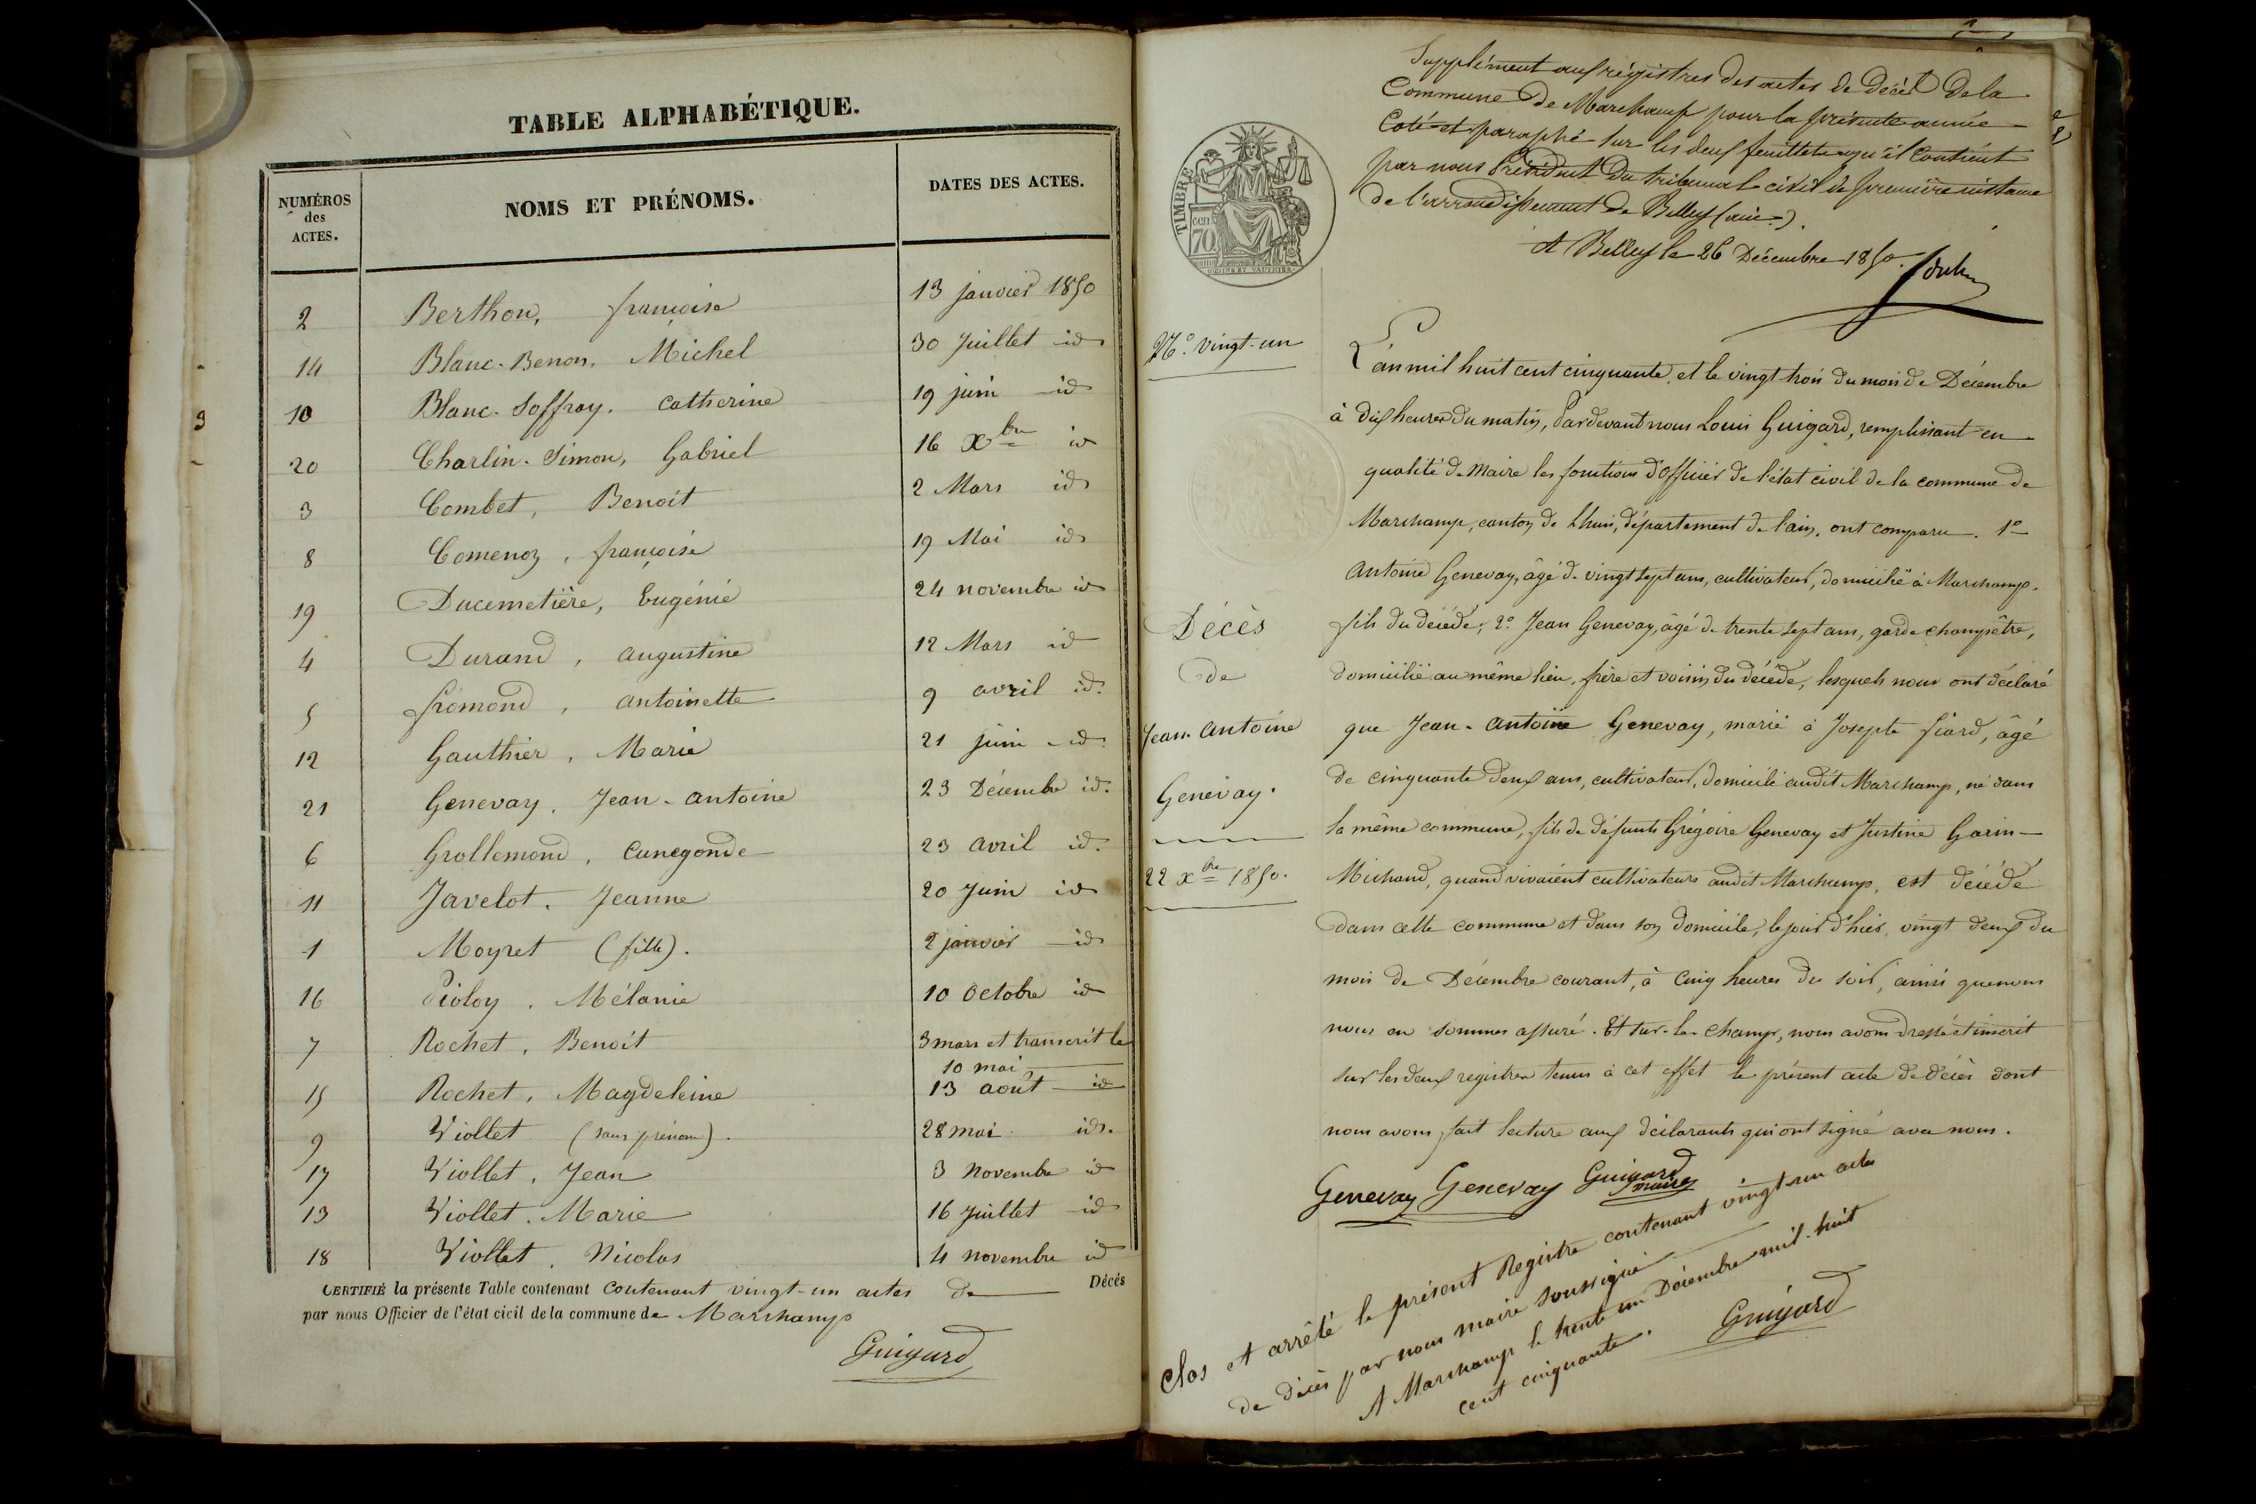 TABLE ALPHABÉTIQUE.
NUMÉROS des ACTES. NOMS ET PRÉNOMS. DATES DES ACTES.
2 Berthon, françoise 13 janvier 1850
14 Blanc-Benon, Michel 30 Juillet id
10 Blanc-Joffray. Catherine 19 juin id
20 Charlin-Simon, Gabriel 16 Xbre id
3 Combet, Benoit 2 Mars id
8 Comenoz, françoise 19 Mai id
19 Ducemetière, Eugénie 24 novembre id
4 Durand, augustine 12 Mars id
5 fromond, antoinette 9 avril id.
12 Gauthier, Marie 21 juin id.
21 Genevay, Jean-antoine 23 Décembre id.
6 Grollemond, Cunegonde 23 avril id.
11 Javelot. Jeanne 20 Juin id
1 Moyret (fille). 2 janvier id
16 Pioloy, Mélanie 10 Octobre id
7 Rochet, Benoit 3 mars et transcrit le
10 mai
15 Rochet, Magdeleine 13 août id
9 Viollet (sans prénom). 28 mai id.
17 Viollet, Jean 3 Novembre id
13 Viollet. Marie 16 Juillet id
18 Viollet, Nicolas 4 novembre id
CERTIFIÉ la présente Table contenant Contenant vingt-un actes de Décés
par nous Officier de l'état cicil de la commune de Marchamp
Guigard
Supplément aux régistres des actes de Décès De la
Commune De Marchamp pour la présente année
Coté et paraphé sur les deux feuillets qu'il contient
par nous Président Du tribunal civil de première instance
de l'arrondissement de Belley (ain).
A Belley le 26 Décembre 1850.
TIMBRE
cen 70
N.° vingt-un
Décès
de
Jean-Antoine
Genevay.
22 xbre 1850.
L'an mil huit cent cinquante, et le vingt trois du mois de Décembre
à dix heures du matin, Pardevant nous Louis Guigard, remplissant en
qualité de Maire les fonctions d'Officier de l'état civil de la commune de
Marchamp, canton de Lhuis, département de l'ain, ont comparu. 1°
Antoine Genevay, âgé de vingt sept ans, cultivateur, domicilié à Marchamp.
fils du décédé; 2° Jean Genevay, âgé de trente sept ans, garde champêtre,
domicilié au même lieu, frère et voisin du décédé, lesquels nous ont déclaré
que Jean-Antoine Genevay, marié à Josepte fiard, âgé
de cinquante deux ans, cultivateur, domicilié audit Marchamp, né dans
la même commune, fils de défunts Grégoire Genevay et Justine Garin-
Michaud, quand vivaient cultivateurs audit Marchamp, est décédé
dans cette commune et dans son domicile, le jour d'hier, vingt deux du
mois de Décembre courant, à cinq heures du soir, ainsi que nous
nous en sommes assuré. Et sur-le-champ, nous avons dressé et inscrit
sur les deux registres tenus à cet effet le présent acte de décès dont
nous avons fait lecture aux déclarants qui ont signé avec nous.
Genevay Genevay Guigard
maire
Clos et arrêté le présent Registre contenant vingt-un actes
de décès par nous maire soussigné
A Marchamp le trente un Décembre mil-huit
cent cinquante.
Guigard